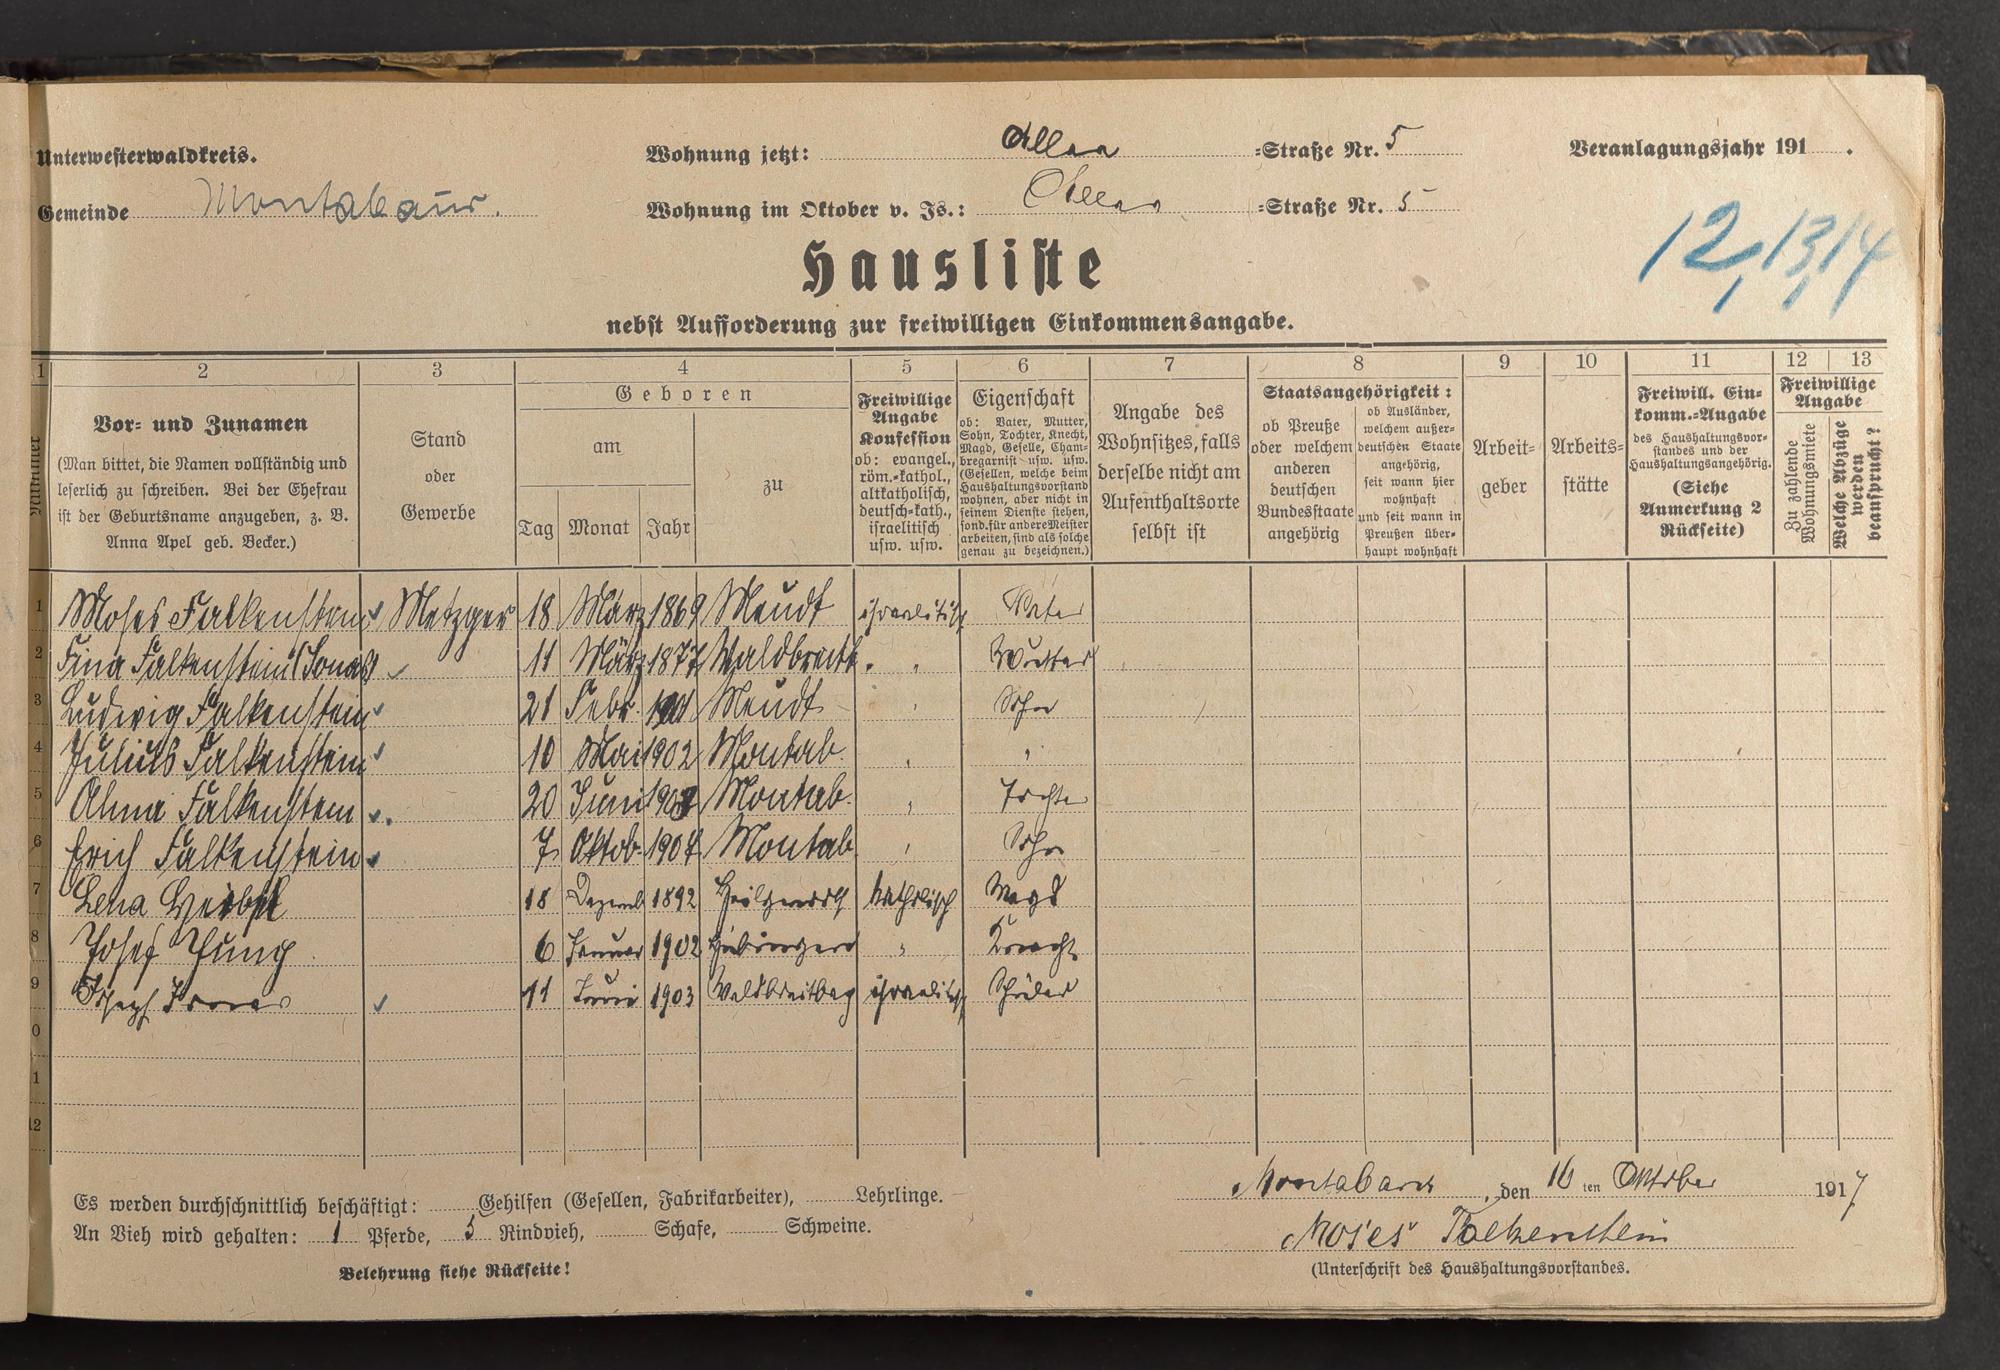 Unterwesterwaldkreis.
Wohnung jetzt: Allee =Straße Nr. 5
Veranlagungsjahr 191 .
Gemeinde Montabaur.
Wohnung im Oktober v. Js.: Allee =Straße Nr. 5
12, 13, 14
Hausliste
nebst Aufforderung zur freiwilligen Einkommensangabe.
1 2 3 4 5 6 7 8 9 10 11 12 13
Nummer
Vor- und Zunamen
(Man bittet, die Namen vollständig und
leserlich zu schreiben. Bei der Ehefrau
ist der Geburtsname anzugeben, z. B.
Anna Apel geb. Becker.)
Stand
oder
Gewerbe
Geboren
am
zu
Tag Monat Jahr
Freiwillige
Angabe
Konfession
ob: evangel.,
röm.-kathol.,
altkatholisch,
deutsch-kath.,
israelitisch
usw. usw.
Eigenschaft
ob: Vater, Mutter,
Sohn, Tochter, Knecht,
Magd, Geselle, Cham-
bregarnist usw. usw.
(Gesellen, welche beim
Haushaltungsvorstand
wohnen, aber nicht in
seinem Dienste stehen,
sond. für andere Meister
arbeiten, sind als solche
genau zu bezeichnen.)
Angabe des
Wohnsitzes, falls
derselbe nicht am
Aufenthaltsorte
selbst ist
Staatsangehörigkeit:
ob Preuße
oder welchem
anderen
deutschen
Bundesstaate
angehörig
ob Ausländer,
welchem außer-
deutschen Staate
angehörig,
seit wann hier
wohnhaft
und seit wann in
Preußen über-
haupt wohnhaft
Arbeit-
geber
Arbeits-
stätte
Freiwill. Ein-
komm.-Angabe
des Haushaltungsvor-
standes und der
Haushaltungsangehörig.
(Siehe
Anmerkung 2
Rückseite)
Freiwillige
Angabe
Zu zahlende
Wohnungsmiete
Welche Abzüge
werden
beansprucht?
1 Moses Falkenstein Metzger 18 März 1869 Meudt israelitisch Vater
2 Fina Falkenstein (Jonas) 11 März 1877 Waldbreitb. " Mutter
3 Ludwig Falkenstein 21 Febr. 1901 Meudt " Sohn
4 Julius Falkenstein 10 Mai 1902 Montab. " "
5 Alma Falkenstein 20 Juni 1903 Montab. " Tochter
6 Erich Falkenstein 7 Oktob. 1907 Montab. " Sohn
7 Lena 18 Dezemb 1892 katholisch Magd
8 Josef Jung 6 Januar 1902 " Knecht
9 Joseph Jonas 11 Juni 1903 Waldbreitbag israelitisch Schüler
0
1
12
Es werden durchschnittlich beschäftigt: Gehilfen (Gesellen, Fabrikarbeiter), Lehrlinge.
An Vieh wird gehalten: 1 Pferde, 5 Rindvieh, Schafe, Schweine.
Belehrung siehe Rückseite!
Montabaur, den 16 ten Oktober 1917
Moses Falkenstein
(Unterschrift des Haushaltungsvorstandes.